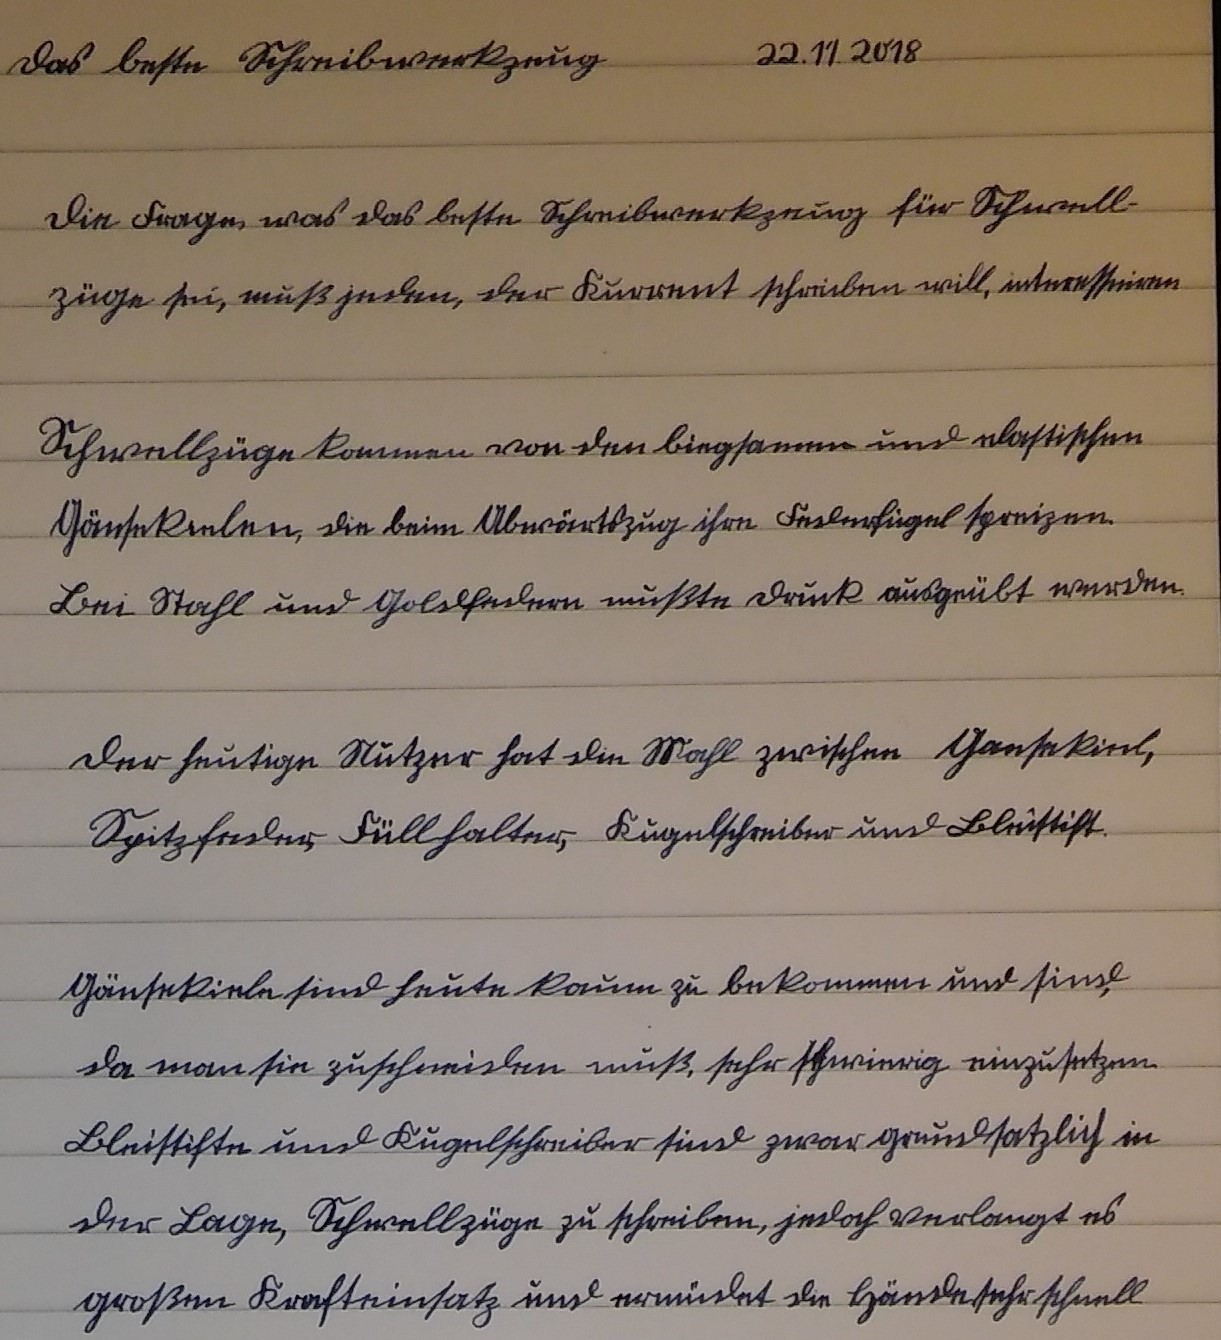 Das beste Schreibwerkzeug 22.11.2018
Die Frage, was das beste Schreibwerkzeug für Schwell-
züge sei, muß jeden, der Kurrent schreiben will, interessieren
Schwellzüge kommen von den biegsamen und elastischen
Gänsekielen, die beim Abwärtszug ihre Federflügel spreizen.
Bei Stahl und Goldfedern mußte Druck ausgeübt werden.
Der heutige Nutzer hat die Wahl zwischen Gänsekiel,
Spitzfeder, Füllhalter, Kugelschreiber und Bleistift.
Gänsekiele sind heute kaum zu bekommen und sind,
da man sie zuschneiden muß, sehr schwierig einzusetzen.
Bleistifte und Kugelschreiber sind zwar grundsätzlich in
der Lage, Schwellzüge zu schreiben, jedoch verlangt es
großen Krafteinsatz und ermüdet die Hände sehr schnell